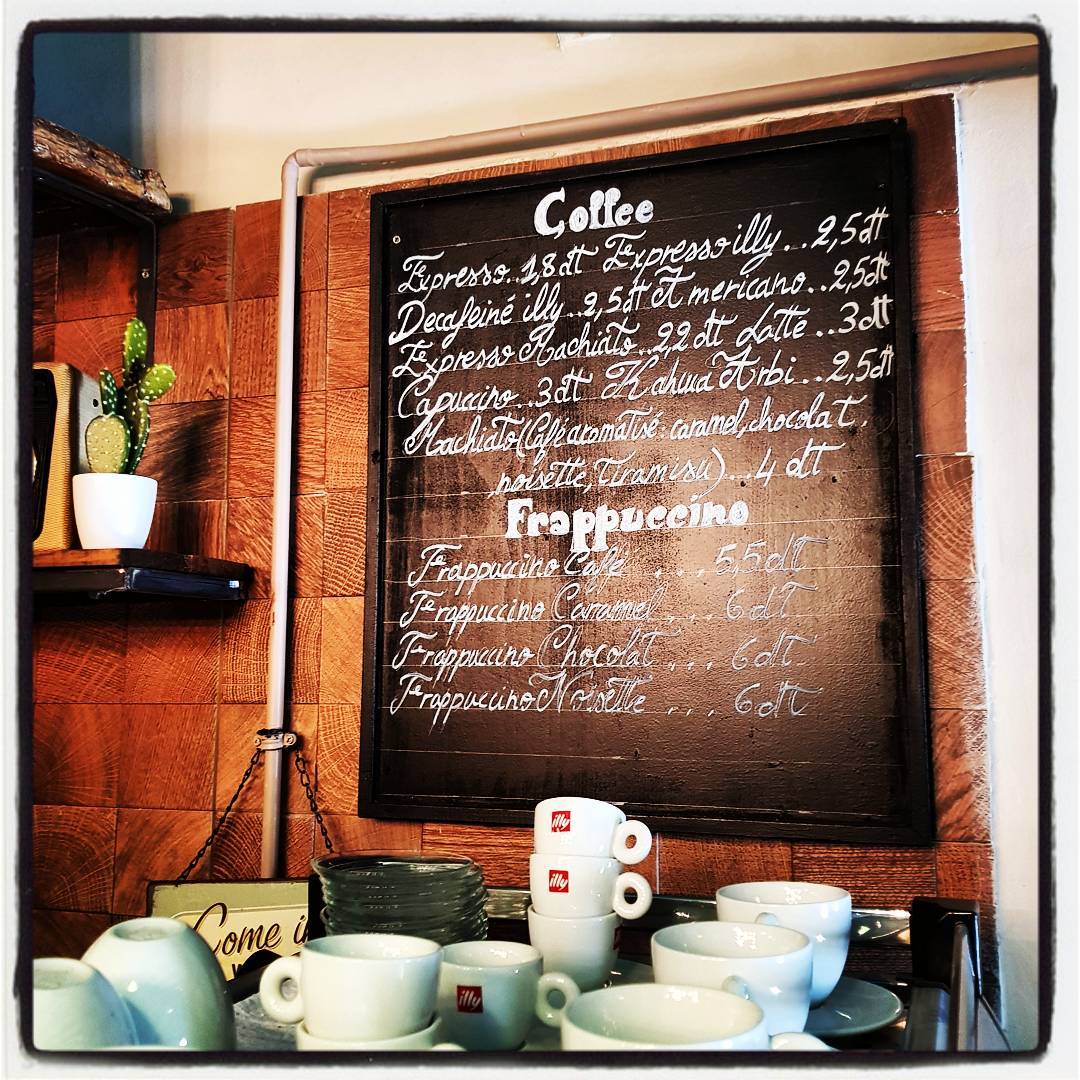 Coffee
Expresso..1,8dt Expresso illy..2,5dt
Decafeiné illy..2,5dt Americano..2,5dt
Expresso Machiato..2,2dt Latte..3dt
Capuccino..3dt Kahwa Arbi..2,5dt
Machiato(Café aromatisé: caramel, chocolat,
noisette, Tiramisu)...4 dt
Frappuccino
Frappuccino Café ... 5,5dt
Frappuccino Caramel... 6dt
Frappuccino Chocolat ... 6dt
Frappuccino Noisette ... 6dt
illy
illy
Come
illy